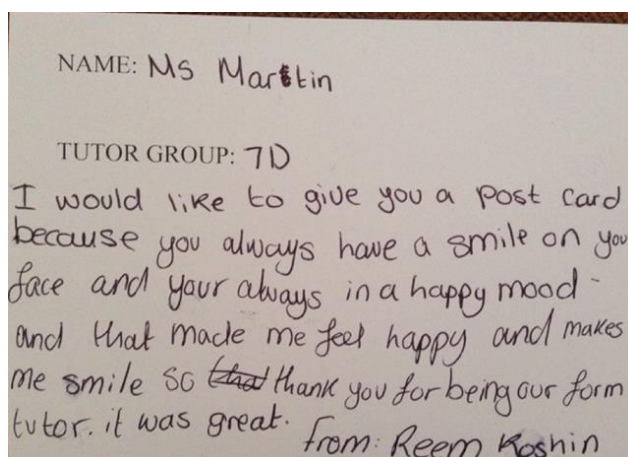 NAME: Ms Martin
TUTOR GROUP: 7D
I would like to give you a post card
because you always have a smile on you
face and your always in a happy mood -
and that made me feel happy and makes
me smile so that thank you for being our form
tutor. it was great.
from: Reem Koshin